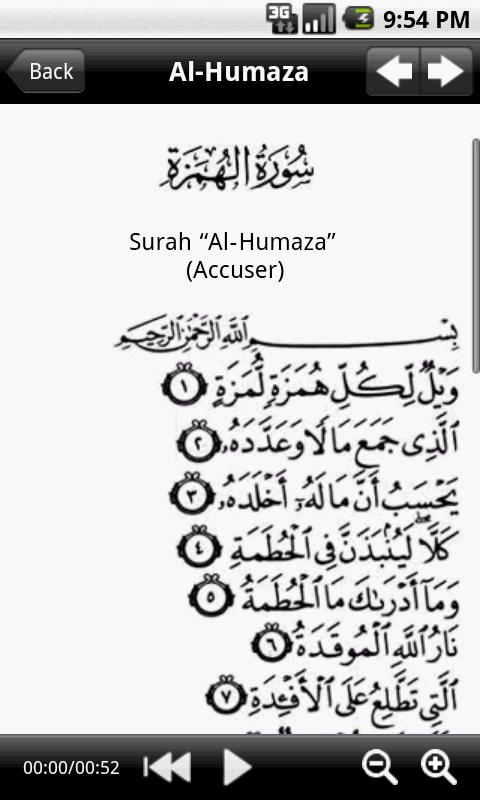 3G 9:54 PM
Back Al-Humaza
سُورَةُ الْهُمَزَةِ
Surah “Al-Humaza”
(Accuser)
بِسْمِ اللَّهِ الرَّحْمَٰنِ الرَّحِيمِ
وَيْلٌ لِّكُلِّ هُمَزَةٍ لُّمَزَةٍ ١
الَّذِى جَمَعَ مَالًا وَعَدَّدَهُۥ ٢
يَحْسَبُ أَنَّ مَالَهُۥٓ أَخْلَدَهُۥ ٣
كَلَّا ۖ لَيُنۢبَذَنَّ فِى الْحُطَمَةِ ٤
وَمَآ أَدْرَىٰكَ مَا الْحُطَمَةُ ٥
نَارُ اللَّهِ الْمُوقَدَةُ ٦
الَّتِى تَطَّلِعُ عَلَى الْأَفْـِٔدَةِ ٧
00:00/00:52